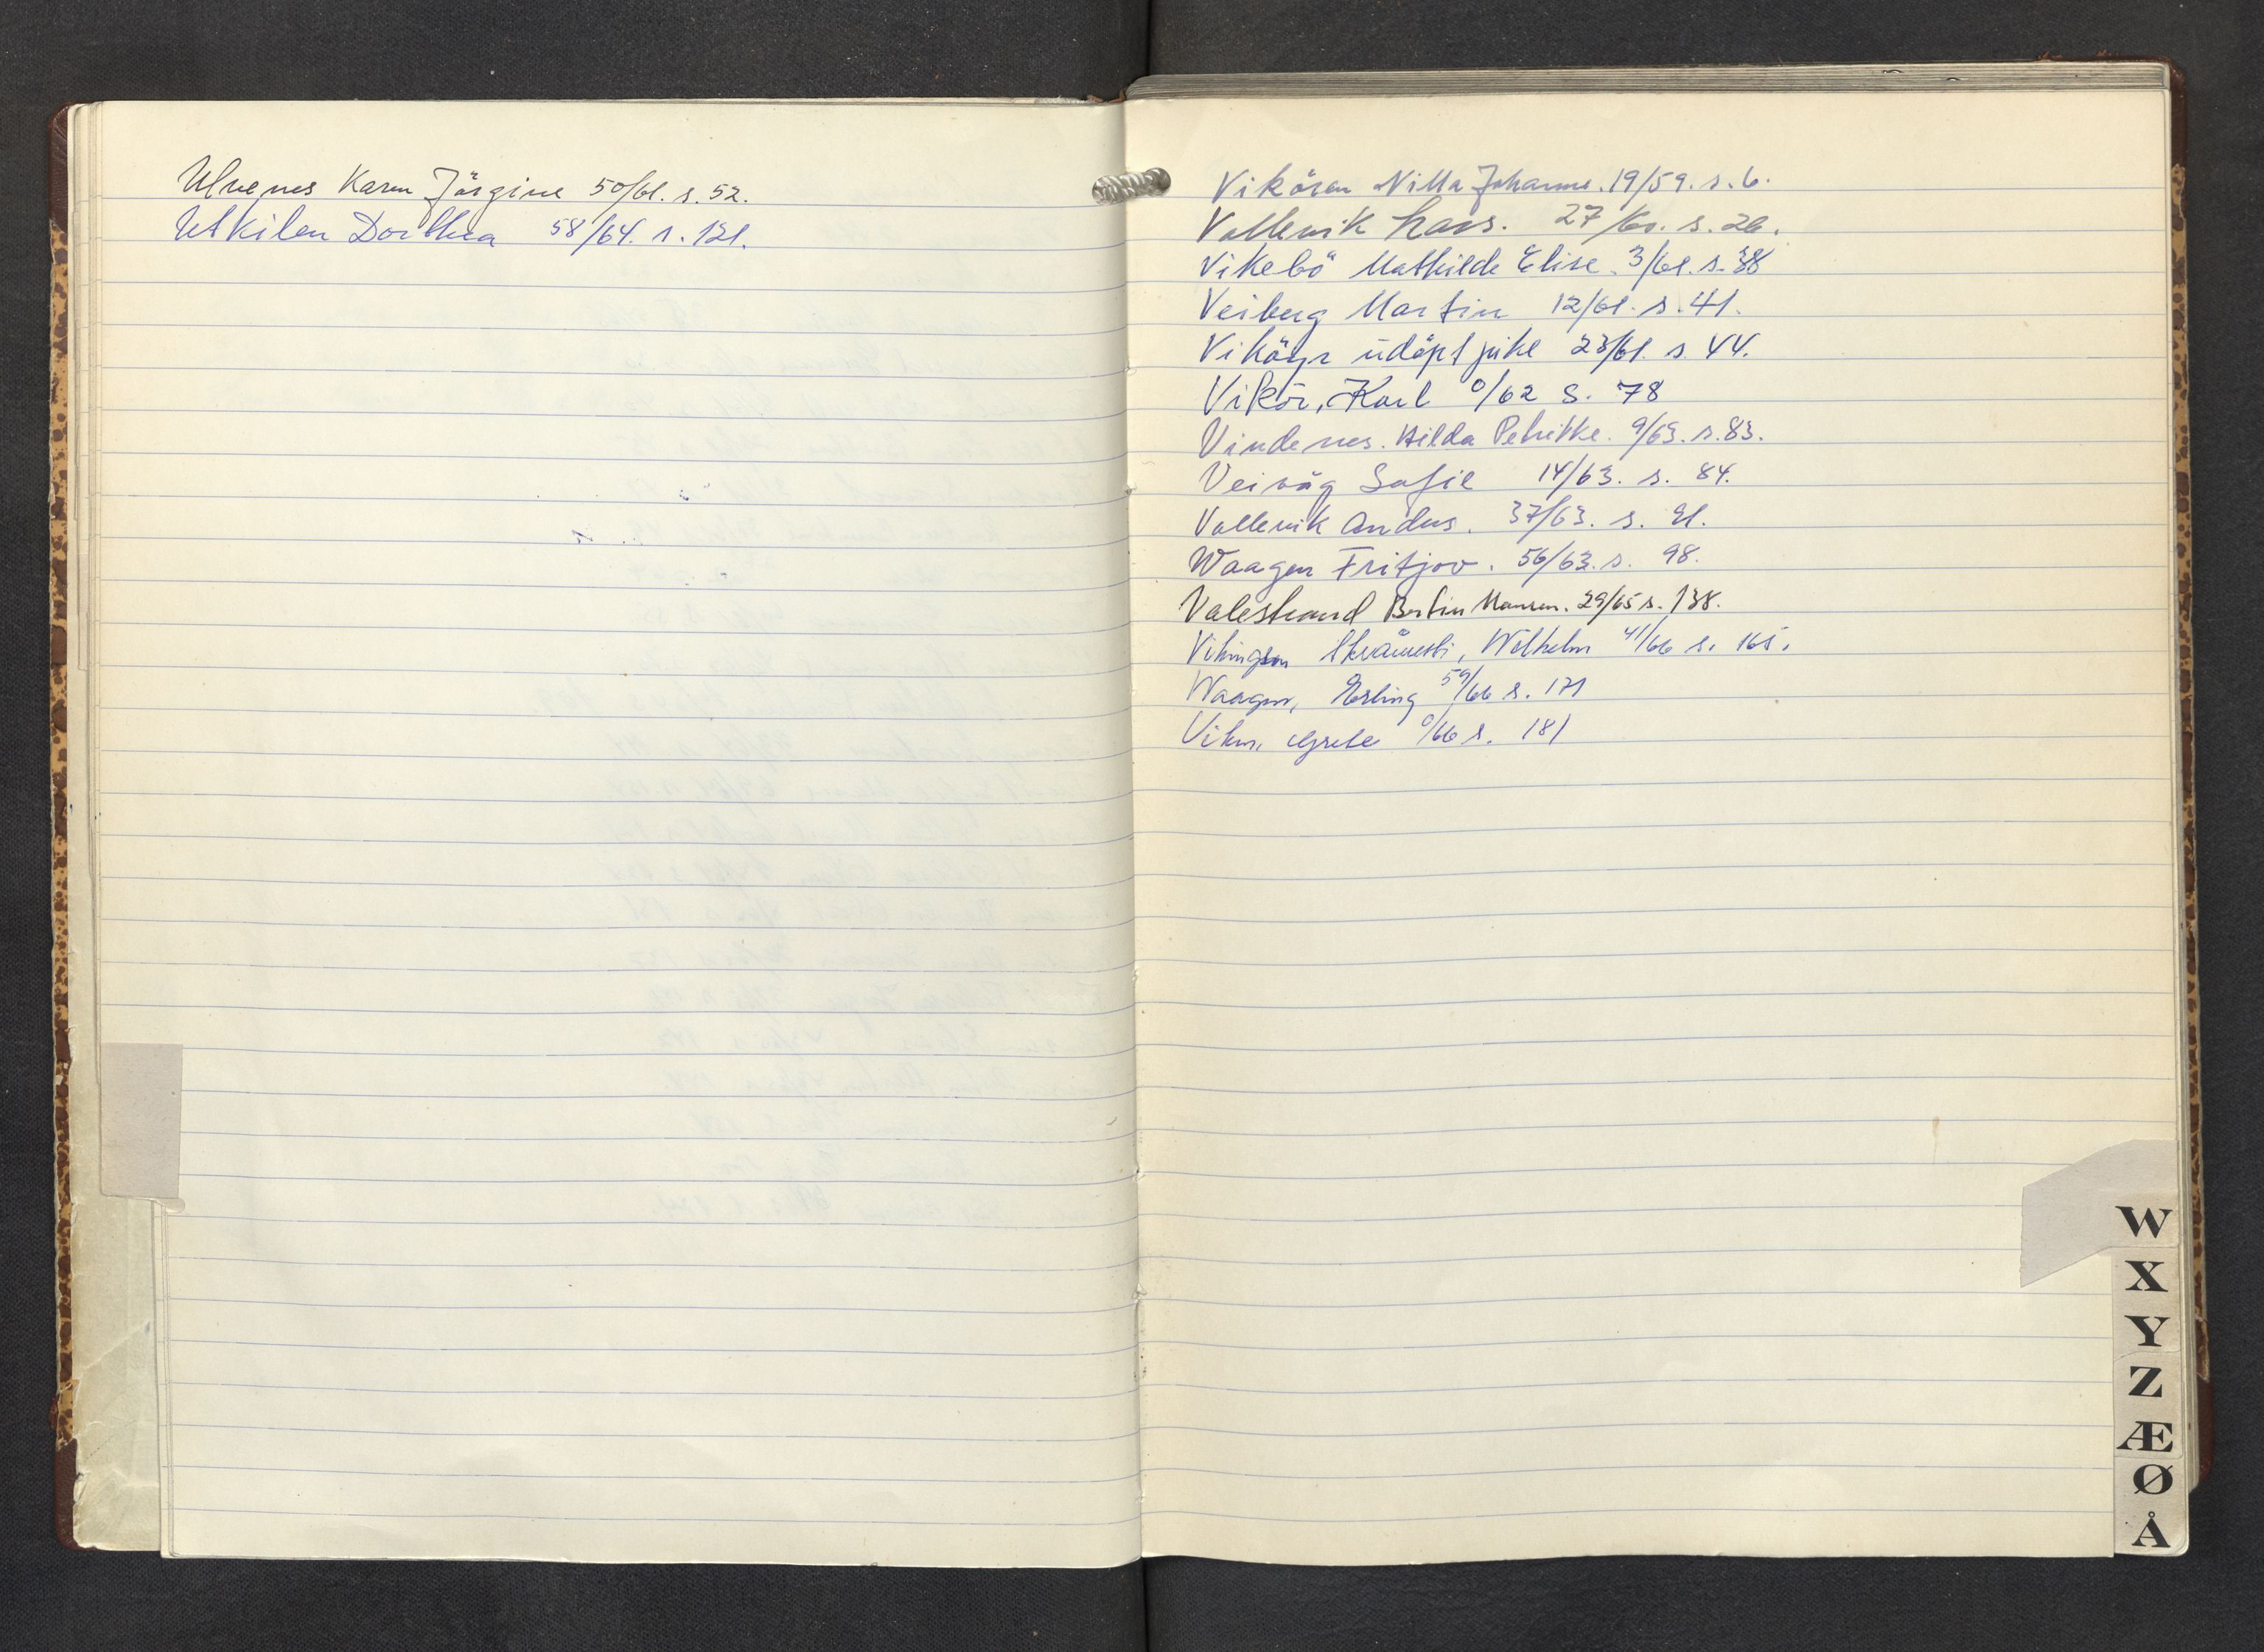 Ulvenes Karen Jörgine 50/61. s. 52.
Utkilen Dorthea 58/64. s. 121.
Vikören Nilla Johanne. 19/59. s. 6.
Vallevik Lars. 27/60. s. 26.
Vikebö Mathilde Elise. 3/61. s. 38
Veiberg Martin 12/61. s. 41.
Viköyr udöpt pike 23/61. s. 44.
Vikör, Karl 0/62 S. 78
Vindenes. Hilda Petrikke. 9/63. s. 83.
Veivåg Sofie 14/63. s. 84.
Vallevik Andus. 37/63. s. 91.
Waagen Fritjov. 56/63. s. 98.
Valestrand Bertin Mansen. 29/65 s. 138.
Vikingson, Wilhelm 41/66 s. 165.
Waagen, Erling 59/66 s. 171
Viken, Grete 0/66 s. 181
W
X
Y
Z
Æ
Ø
Å